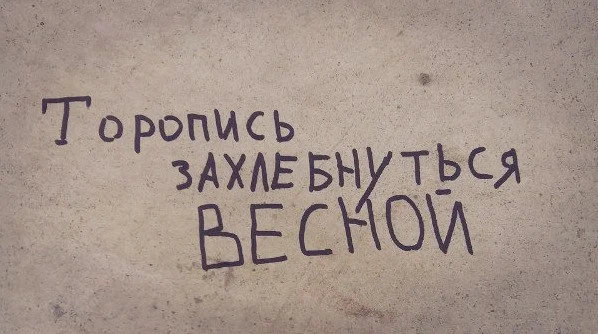 Торопись
ЗАХЛЕБНУТЬСЯ
ВЕСНОЙ